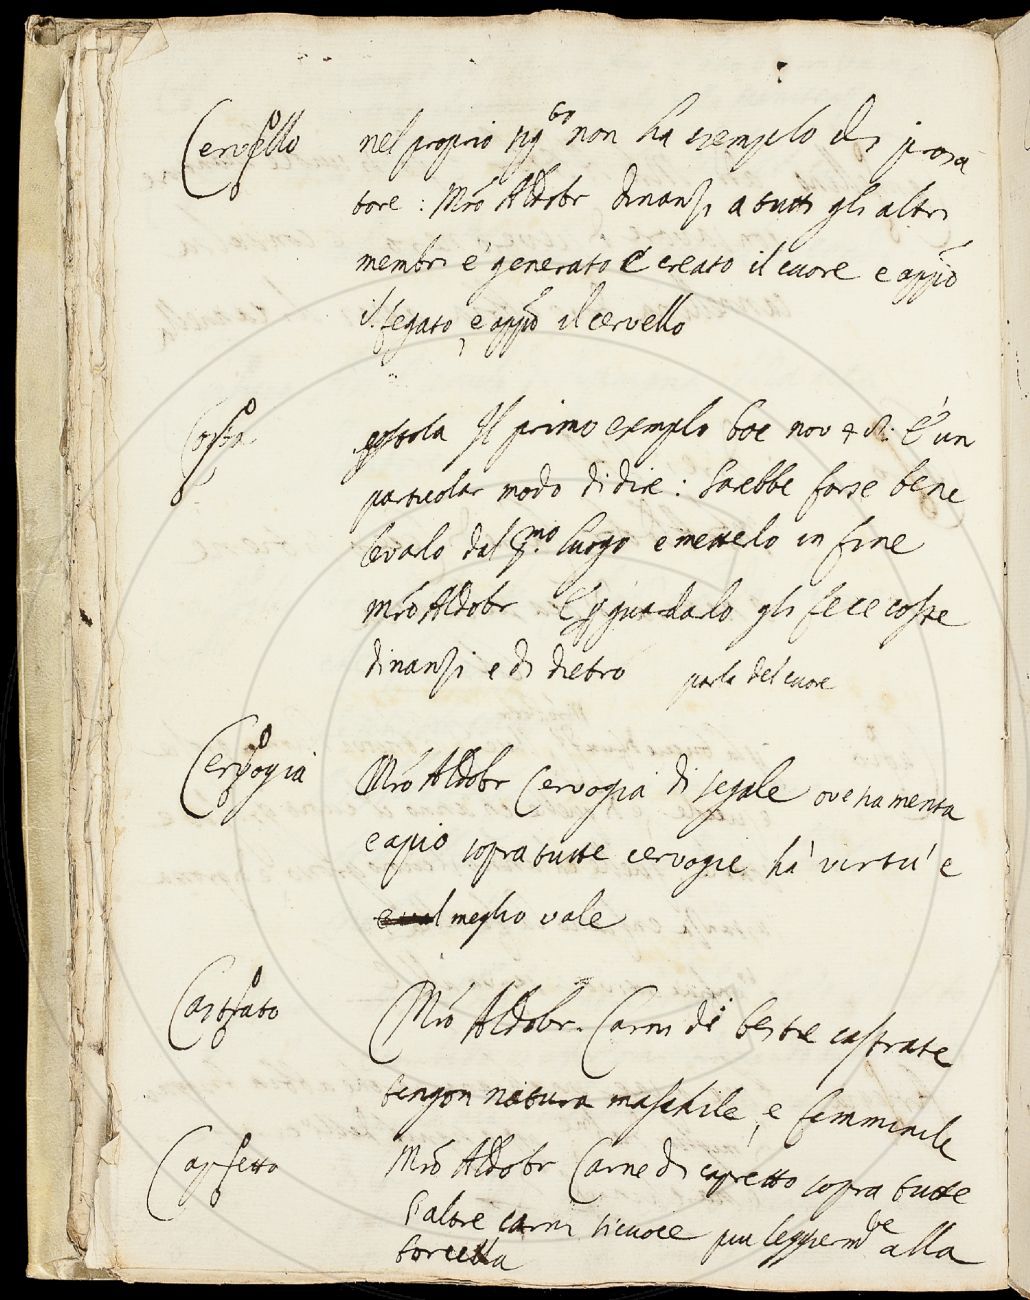 Cervello nel proprio sig.to non ha exemplo di prosa
tore: Mro Aldobr dinanzi a tutti gli altri
membri e' generato e creato il cuore e appo
il fegato, e appo il cervello
Costa costola Il primo exemplo boc nov 4 è un
particolar modo di dire: sarebbe forse bene
levalo dal p.mo luogo e metterlo in fine
Mro Aldobr E p guardarlo gli fece coste
dinanzi e di dietro parla del cuore
Cervogia Mro Aldobr Cervogia di segale ove ha menta
e apio sopra tutte cervogie hà virtù e
meglio vale
Castrato Mro Aldobr. Carni di bestie castrate
tengon natura maschile, e femminile
Capretto Mro Aldobr Carne di capretto sopra tutte
l'altre carni si cuoce piu leggierm.te alla
forcella